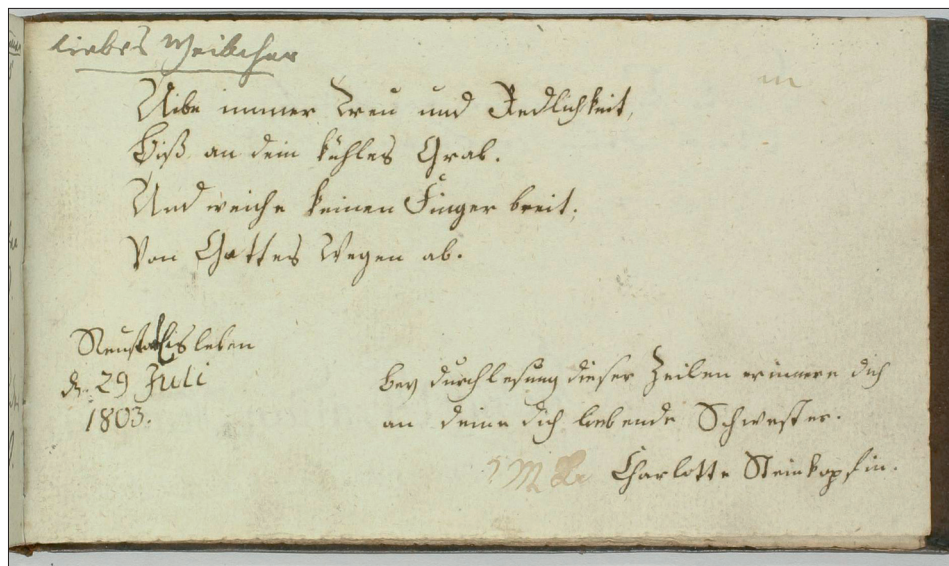 liebes Weibchen
Uibe immer Treu und Redlichkeit,
Biß an dein kühles Grab.
Und weiche keinen Finger breit,
Von Gottes Wegen ab.
Neustadt Eisleben
dn. 29 Juli
1803.
bey durchlesung dieser Zeilen erinnere dich
an deine dich liebende Schwester.
Charlotte Steinkopfin.